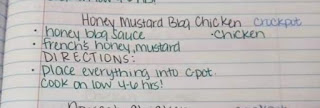 Honey Mustard Bbq Chicken crockpot
• honey bbq sauce • chicken
• french's honey, mustard
DIRECTIONS:
• place everything into c-pot.
cook on low 4-6 hrs!